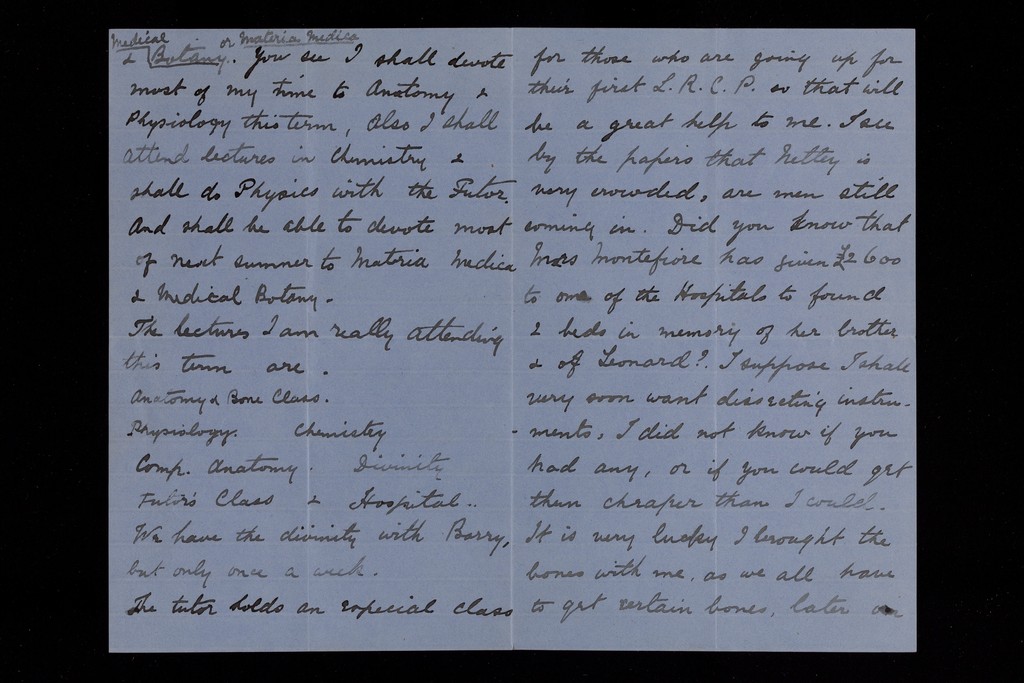 Medical or Materia Medica
& Botany. You see I shall devote
most of my time to Anatomy &
Physiology this term, Also I shall
attend lectures in Chemistry &
shall do Physics with the Tutor.
And shall be able to devote most
of next summer to Materia Medica
& Medical Botany.
The lectures I am really attending
this term are.
Anatomy & Bone Class.
Physiology. Chemistry
Comp. Anatomy. Divinity
Tutor's Class & Hospital..
We have the divinity with Barry,
but only once a week.
The tutor holds an especial class
for those who are going up for
their first L. R. C. P. so that will
be a great help to me. I see
by the papers that Netley is
very crowded, are men still
coming in. Did you know that
Mrs Montefiore has given £2600
to one of the Hospitals to found
2 beds in memory of her brother
& of Leonard?. I suppose I shall
very soon want dissecting instru-
ments, I did not know if you
had any, or if you could get
them cheaper than I could.
It is very lucky I brought the
bones with me, as we all have
to get certain bones, later on